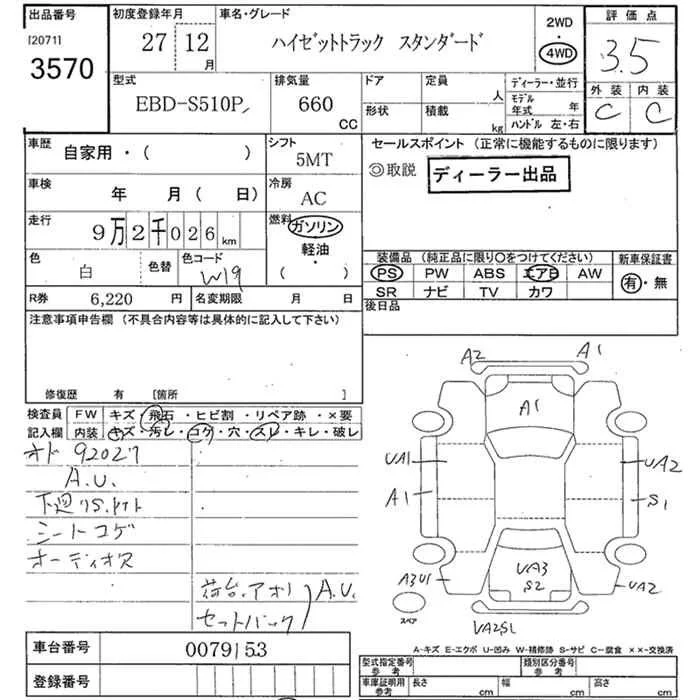 出品番号 初度登録年月 車名・グレード 評価点
[2071] 27 12月 ハイゼットトラック スタンダード 2WD ・ 4WD 3.5
3570
型式 排気量 ドア 定員 人 ディーラー・並行 外装 内装
EBD-S510P 660 CC 形状 積載 kg モデル年式 年 C C
ハンドル 左・右
車歴 自家用・( ) シフト 5MT セールスポイント (正常に機能するものに限ります)
◎取説 ディーラー出品
車検 年 月 ( 日) 冷房 AC
走行 9万2千026km 燃料 ガソリン
軽油・
( )
色 白 色替 色コード W19 装備品 (純正品に限り〇をつけてください) 新車保証書
PS PW ABS エアB AW 有・無
R券 6,220 円 名変期限 月 日 SR ナビ TV カワ
注意事項申告欄 (不具合内容等は具体的に記入して下さい) 後日品
修復歴 有 [箇所 ]
検査員 FW キズ・飛石・ヒビ割・リペア跡・×要
記入欄 内装 キズ・汚レ・コゲ・穴・スレ・キレ・破レ
オド 92027
A.U.
シートコゲ
オーディオス
荷台.アオリ A.U.
セットバック
A2 A1
A1
UA1 UA2
A1 S1
UA3
S2
A3U1 UA2
スペア
UA2S1
A-キズ E-エクボ U-凹み W-補修跡 S-サビ C-腐食 ××-交換済
車台番号 0079153
登録番号
型式指定番号 参考 類別区分番号 参考
車庫証明用 参考 長さ cm 幅 cm 高さ cm